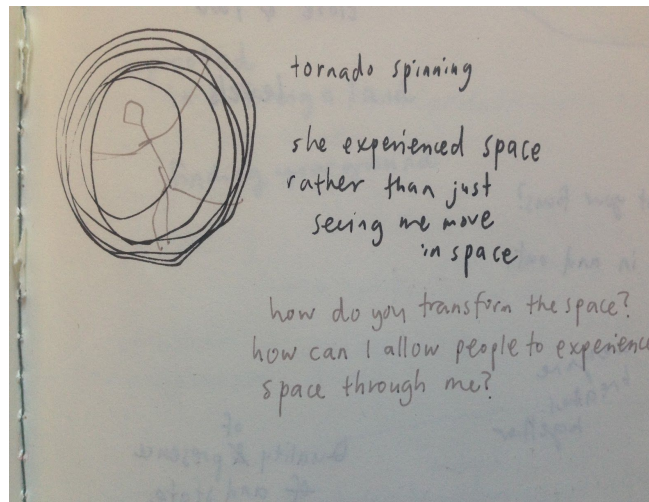 tornado spinning
she experienced space
rather than just
seeing me move
in space
how do you transform the space?
how can I allow people to experience
space through me?